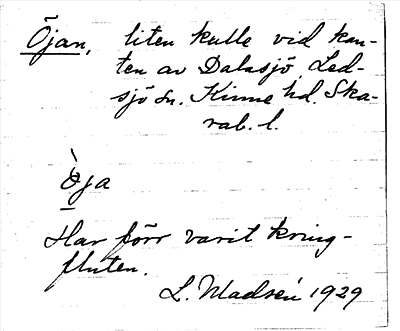 Öjan, liten kulle vid kan-
ten av Dalasjö, Led-
sjö sn. Kinne hd. Ska-
rab. l.
Òja
Har förr varit kring-
fluten.
L. Madsén 1929